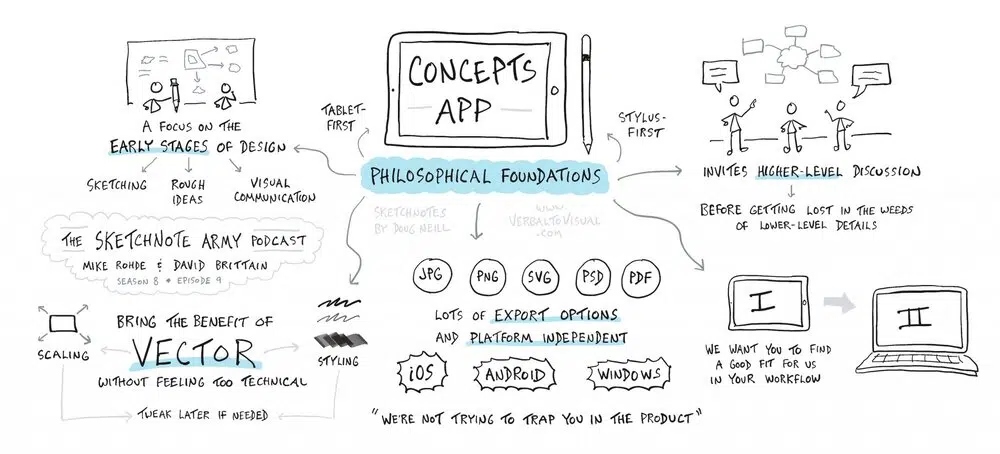 CONCEPTS
APP
TABLET-
FIRST
STYLUS-
FIRST
PHILOSOPHICAL FOUNDATIONS
SKETCHNOTES
BY DOUG NEILL
WWW.
VERBALTOVISUAL
.COM
A FOCUS ON THE
EARLY STAGES OF DESIGN
SKETCHING
ROUGH
IDEAS
VISUAL
COMMUNICATION
THE SKETCHNOTE ARMY PODCAST
MIKE ROHDE & DAVID BRITTAIN
SEASON 8 + EPISODE 9
BRING THE BENEFIT OF
VECTOR
WITHOUT FEELING TOO TECHNICAL
SCALING
STYLING
TWEAK LATER IF NEEDED
JPG
PNG
SVG
PSD
PDF
LOTS OF EXPORT OPTIONS
AND PLATFORM INDEPENDENT
iOS
ANDROID
WINDOWS
"WE'RE NOT TRYING TO TRAP YOU IN THE PRODUCT"
INVITES HIGHER-LEVEL DISCUSSION
BEFORE GETTING LOST IN THE WEEDS
OF LOWER-LEVEL DETAILS
I
II
WE WANT YOU TO FIND
A GOOD FIT FOR US
IN YOUR WORKFLOW